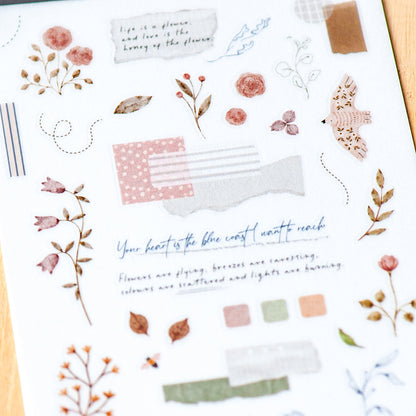 life is a flower,
and love is the
honey of the flower
Your heart is the blue coast I want to reach
Flowers are flying, breezes are caressing,
colours are scattered and lights are burning.